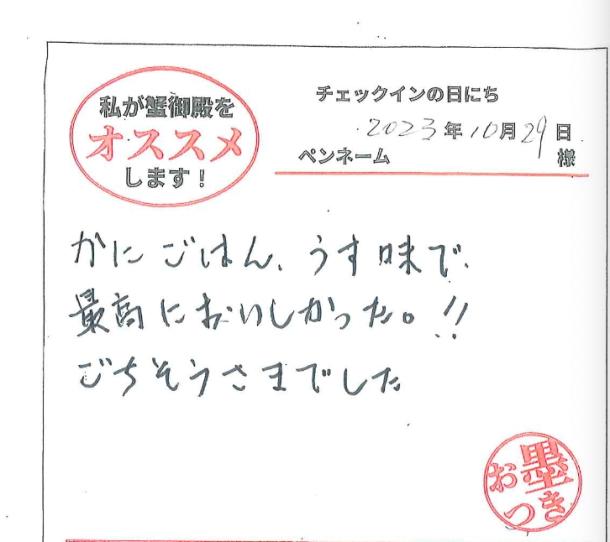 私が蟹御殿を
オススメ
します！
チェックインの日にち
2023年10月29日
ペンネーム 様
かにごはん、うす味で、
最高においしかった。!!
ごちそうさまでした
お墨
つき